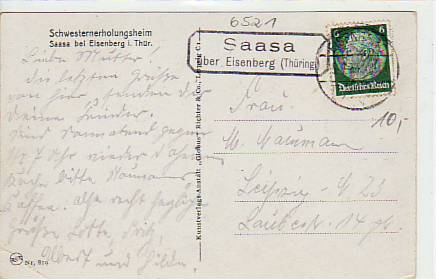 6521
Schwesternerholungsheim
Saasa bei Eisenberg i. Thür.
Saasa
über Eisenberg (Thüring
6 6
Deutsches Reich
10,-
Liebe Mutter!
Die letzten Grüße
von hier senden dir
Deine Kinder.
Sind Sonnabend gegen
7 Uhr wieder daheim
bitte
Kaffee. Also recht herzliche
Grüße Lotte, Fritz,
Albert und Hilde.
Frau
M. Naumann
Leipzig - N 23
Laubestr. 14
Kunstverlagsanstalt „Globus" Richter & Co., Leipzig C 1
Nr. 876